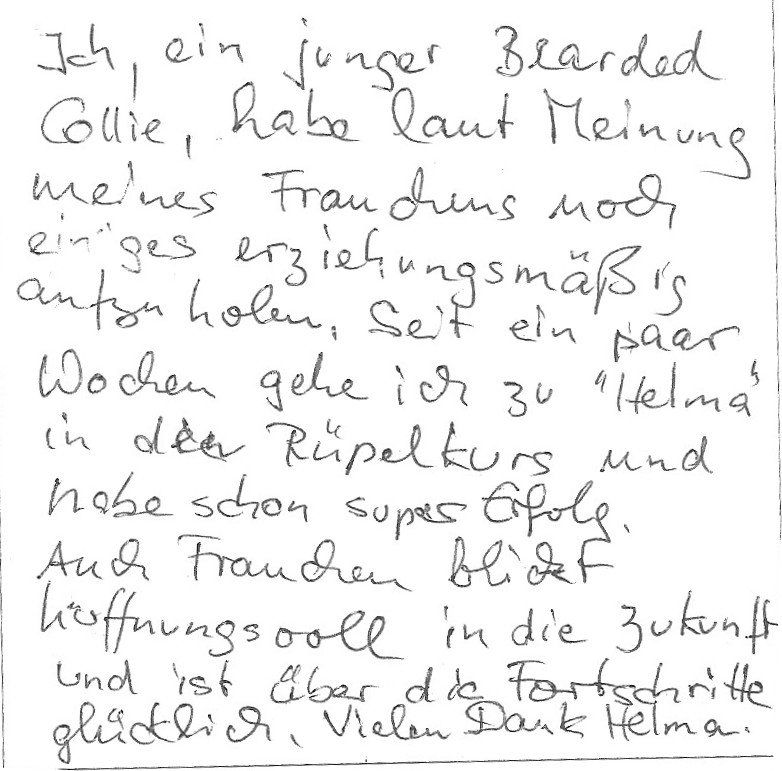 Ich, ein junger Bearded
Collie, habe laut Meinung
meines Frauchens noch
einiges erziehungsmäßig
aufzuholen. Seit ein paar
Wochen gehe ich zu "Helma"
in den Rüpelkurs und
habe schon super Erfolg.
Auch Frauchen blickt
hoffnungsvoll in die Zukunft
und ist über die Fortschritte
glücklich. Vielen Dank Helma.